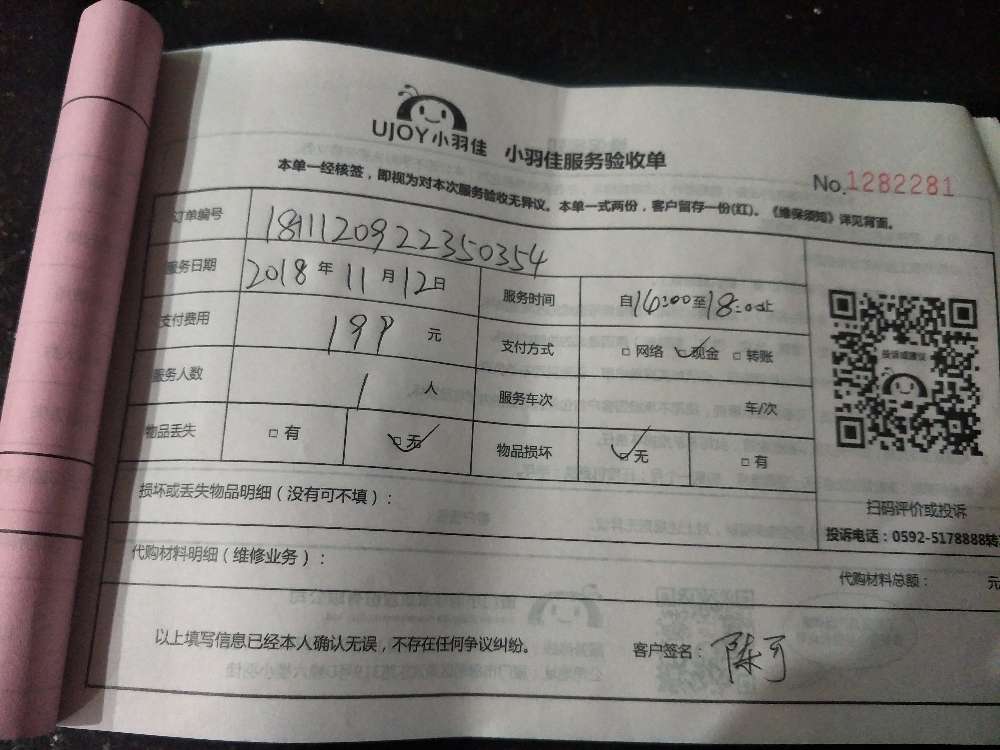 UJOY小羽佳 小羽佳服务验收单
No.1282281
本单一经核签，即视为对本次服务验收无异议。本单一式两份，客户留存一份(红)。《维保须知》详见背面。
订单编号 181112092235​0354
服务日期 2018年11月12日 服务时间 自14:00至18:00止
支付费用 元 支付方式 □网络 ☑现金 □转账
服务人数 1人 服务车次 车/次
物品丢失 □有 ☑无 物品损坏 ☑无 □有
投诉或建议
扫码评价或投诉
投诉电话：0592-5178888转
损坏或丢失物品明细（没有可不填）：
代购材料明细（维修业务）：
代购材料总额： 元
以上填写信息已经本人确认无误，不存在任何争议纠纷。 客户签名：陈可